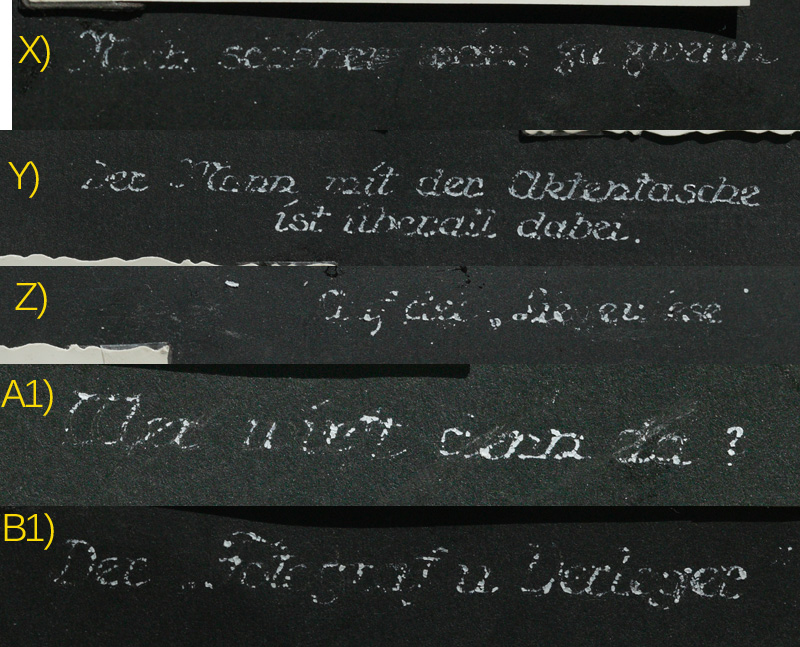 X) Noch schöner wärs zu zweien
Y) Der Mann mit der Aktentasche
ist überall dabei.
Z) Auf der „Liegewiese"
A1) Wer wirft denn da?
B1) Der „Fotograf u. Verleger"